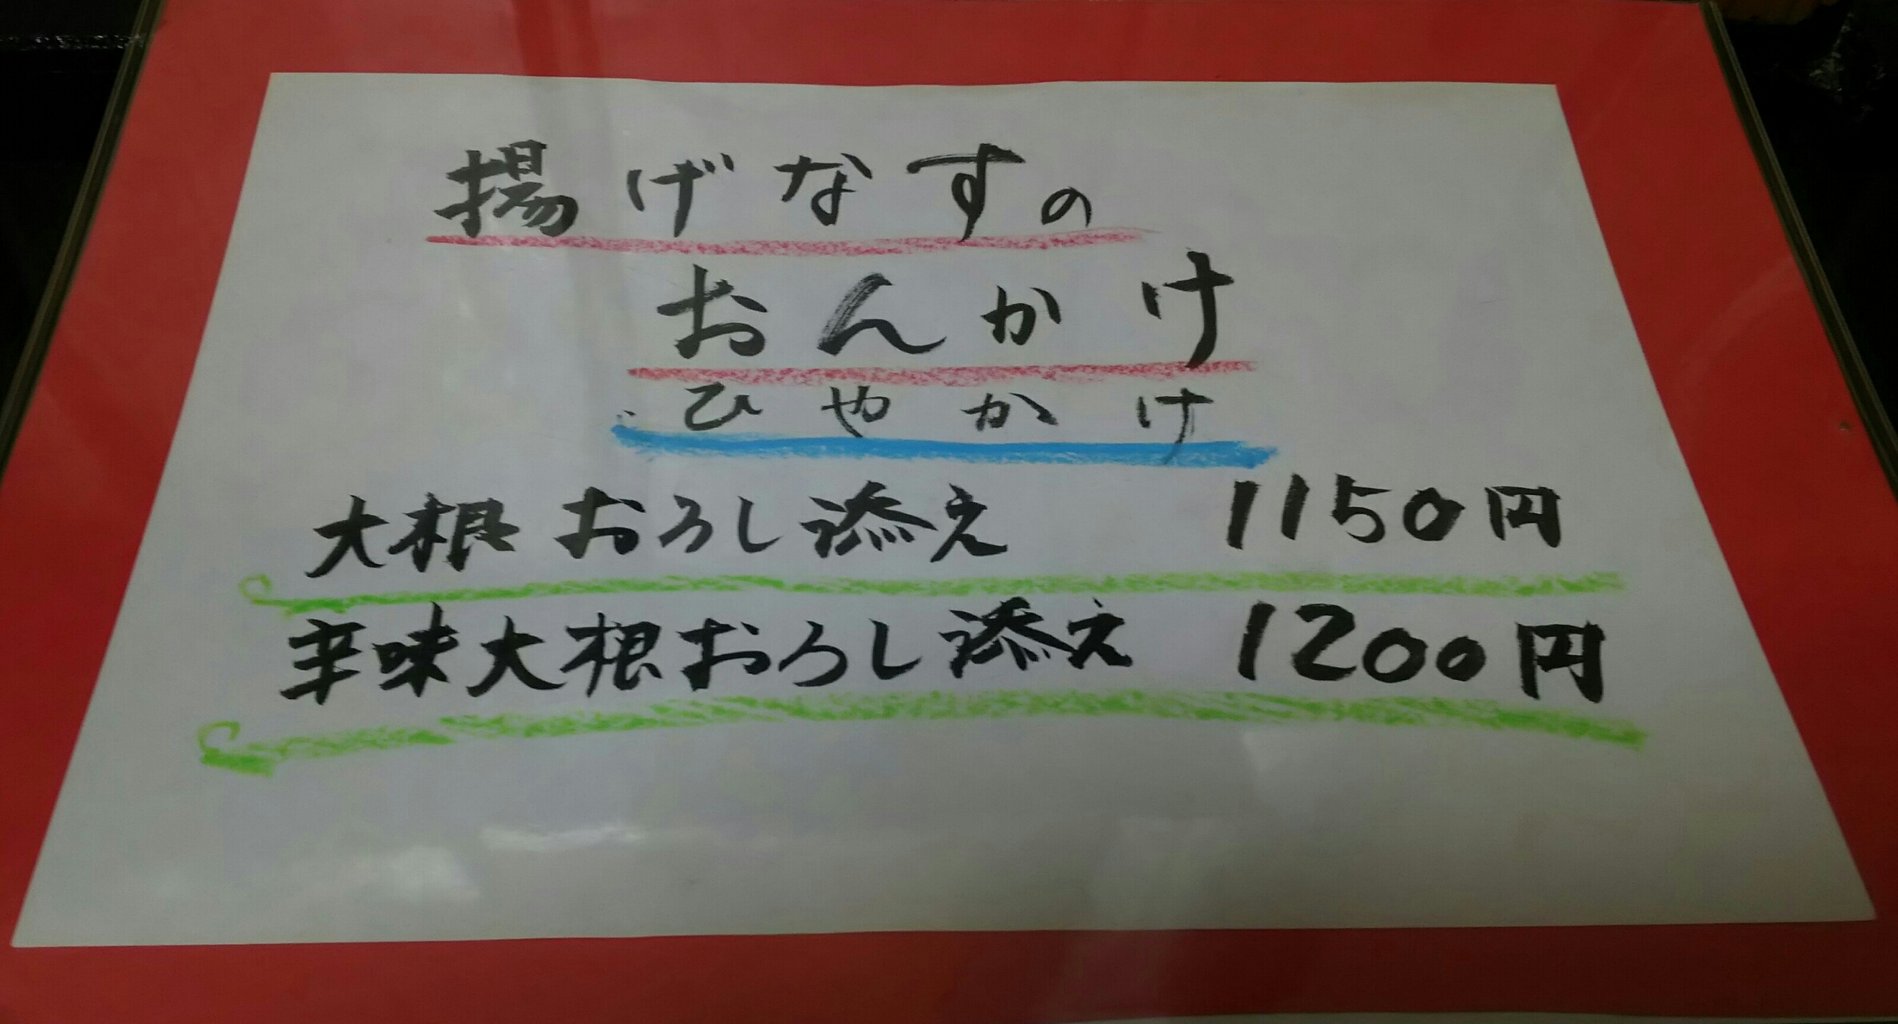 揚げなすの
おんかけ
ひやかけ
大根おろし添え 1150円
辛味大根おろし添え 1200円